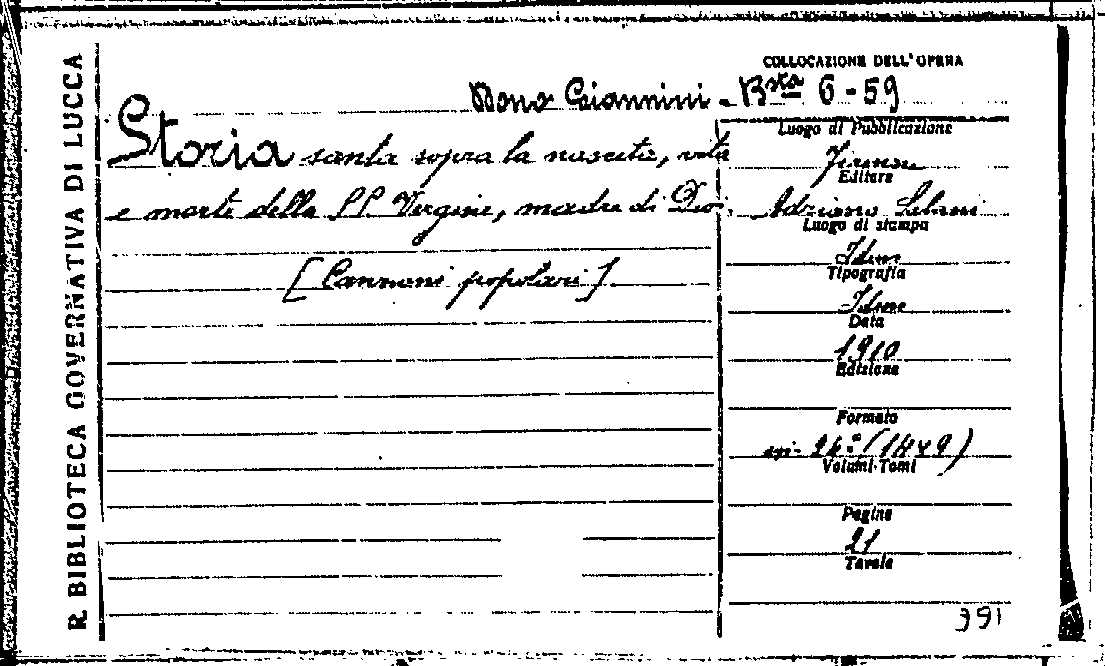 R. BIBLIOTECA GOVERNATIVA DI LUCCA
COLLOCAZIONE DELL'OPERA
Dono Giannini - Bsta 6-59
Storia santa sopra la nascita, vita
e morte della SS. Vergine, madre di Dio.
[Canzoni popolari]
Luogo di Pubblicazione
Firenze
Editore
Adriano Salani
Luogo di stampa
Idem
Tipografia
Idem
Data
1910
Edizione
Formato
24° (14x9)
Volumi-Tomi
Pagine
21
Tavole
391